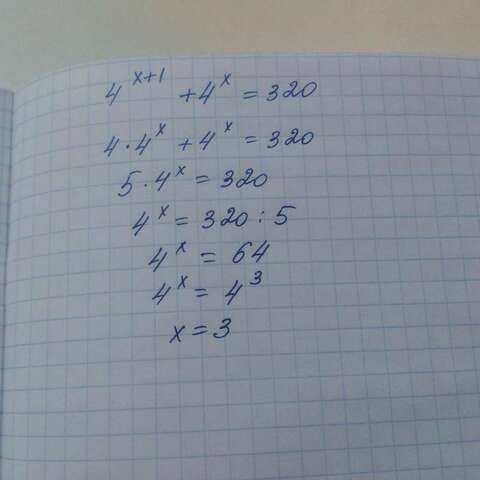 4^{x+1} + 4^x = 320
4 · 4^x + 4^x = 320
5 · 4^x = 320
4^x = 320 : 5
4^x = 64
4^x = 4^3
x = 3